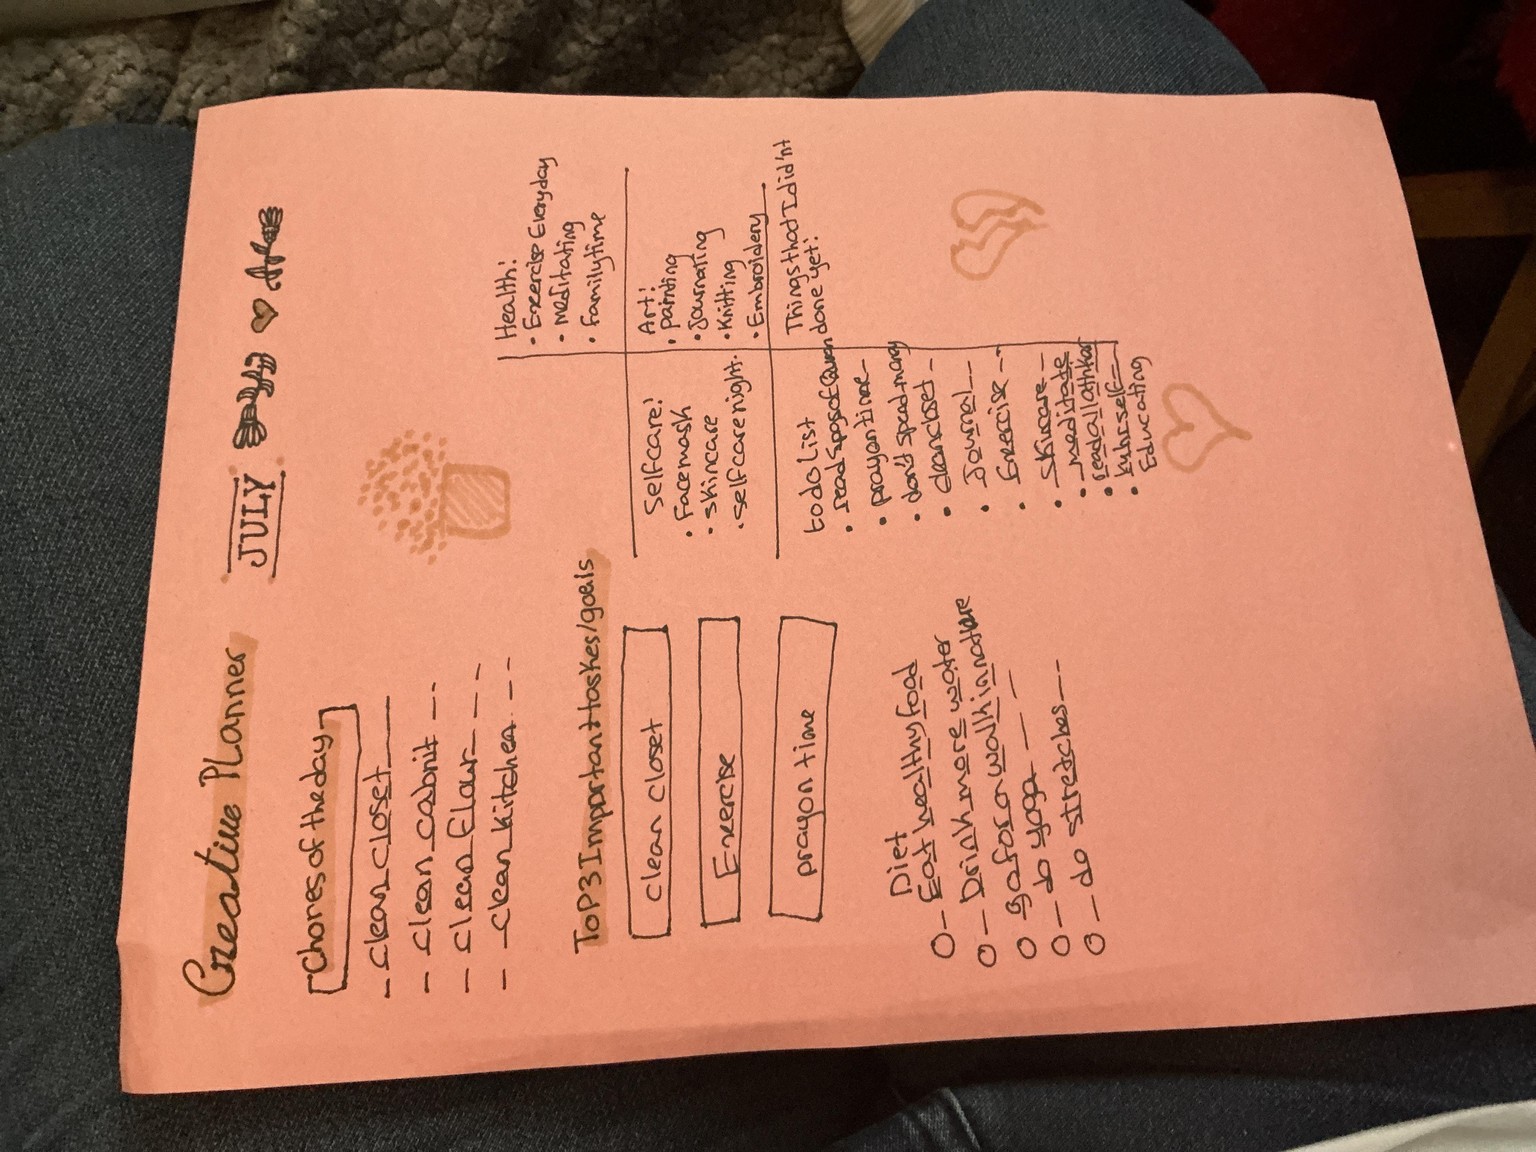 Creative Planner
JULY
Chores of the day
- clean closet
- clean cabnit - -
- clean flour - - -
- clean kitchen - -
Top 3 Important taskes/goals
clean closet
Exercise
pray on time
Diet
O - Eat healthy food
O - Drink more water
O go for a walk in nature
O - do yoga - - -
O - do stretches - - -
Health!
• Exercise Everyday
• meditating
• family time
Selfcare!
• Facemask
• skincare
• selfcare night.
Art!
• painting
• Journaling
• Knitting
• Embroidery
to do List
• read 5 pgs of Quran
• pray on time -
• don't spead many
• clean closet -
• Journal - -
• Exercise - -
• skincare -
• meditate
• read all athkar
•
• Educating
Things that I did'nt
done yet!